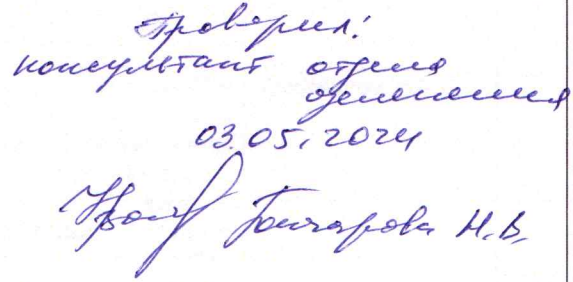 Проверил:
консультант отдела
озеленения
03.05.2024
Гончарова Н.В.